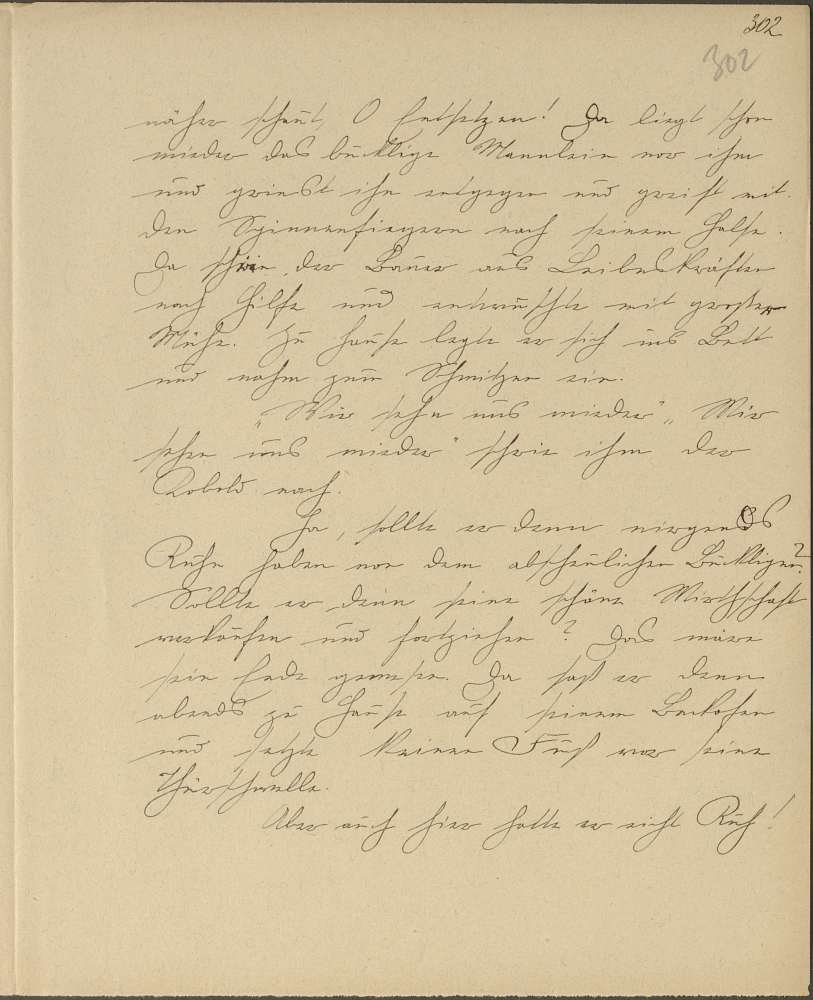 302
302
näher schaut, O Entsetzen! Da liegt schon
wieder das bucklige Mannlein vor ihm
und grinst ihn entgegen und greift mit
den Spinnenfingern nach seinem Halse.
Da schrie der Bauer aus Leibeskräften
nach Hilfe und entwischte mit großer
Mühe. Zu Hause legte er sich ins Bett
und nahm zum Schwitzen ein.
„Wir sehn uns wieder" „Wir
sehen uns wieder" schrie ihm der
Kobold nach.
Ja, sollte er denn nirgends
Ruhe haben vor dem abscheulichen Buckligen?
Sollte er denn seine schöne Wirthschaft
verkaufen und fortziehen? Das wäre
sein Ende gewesen. Da saß er denn
abends zu Hause auf seinem Backofen
und setzte keinen Fuß vor seine
Thürschwelle.
Aber auch hier hatte er nicht Ruh!